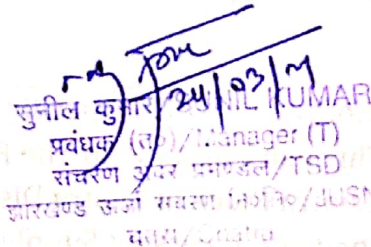 24/03/21
सुनील कुमार/SUNIL KUMAR
प्रबंधक (त०)/Manager (T)
संचरण अवर प्रमण्डल/TSD
झारखण्ड ऊर्जा संचरण नि०लि०/JUSN
चतरा/Chatra